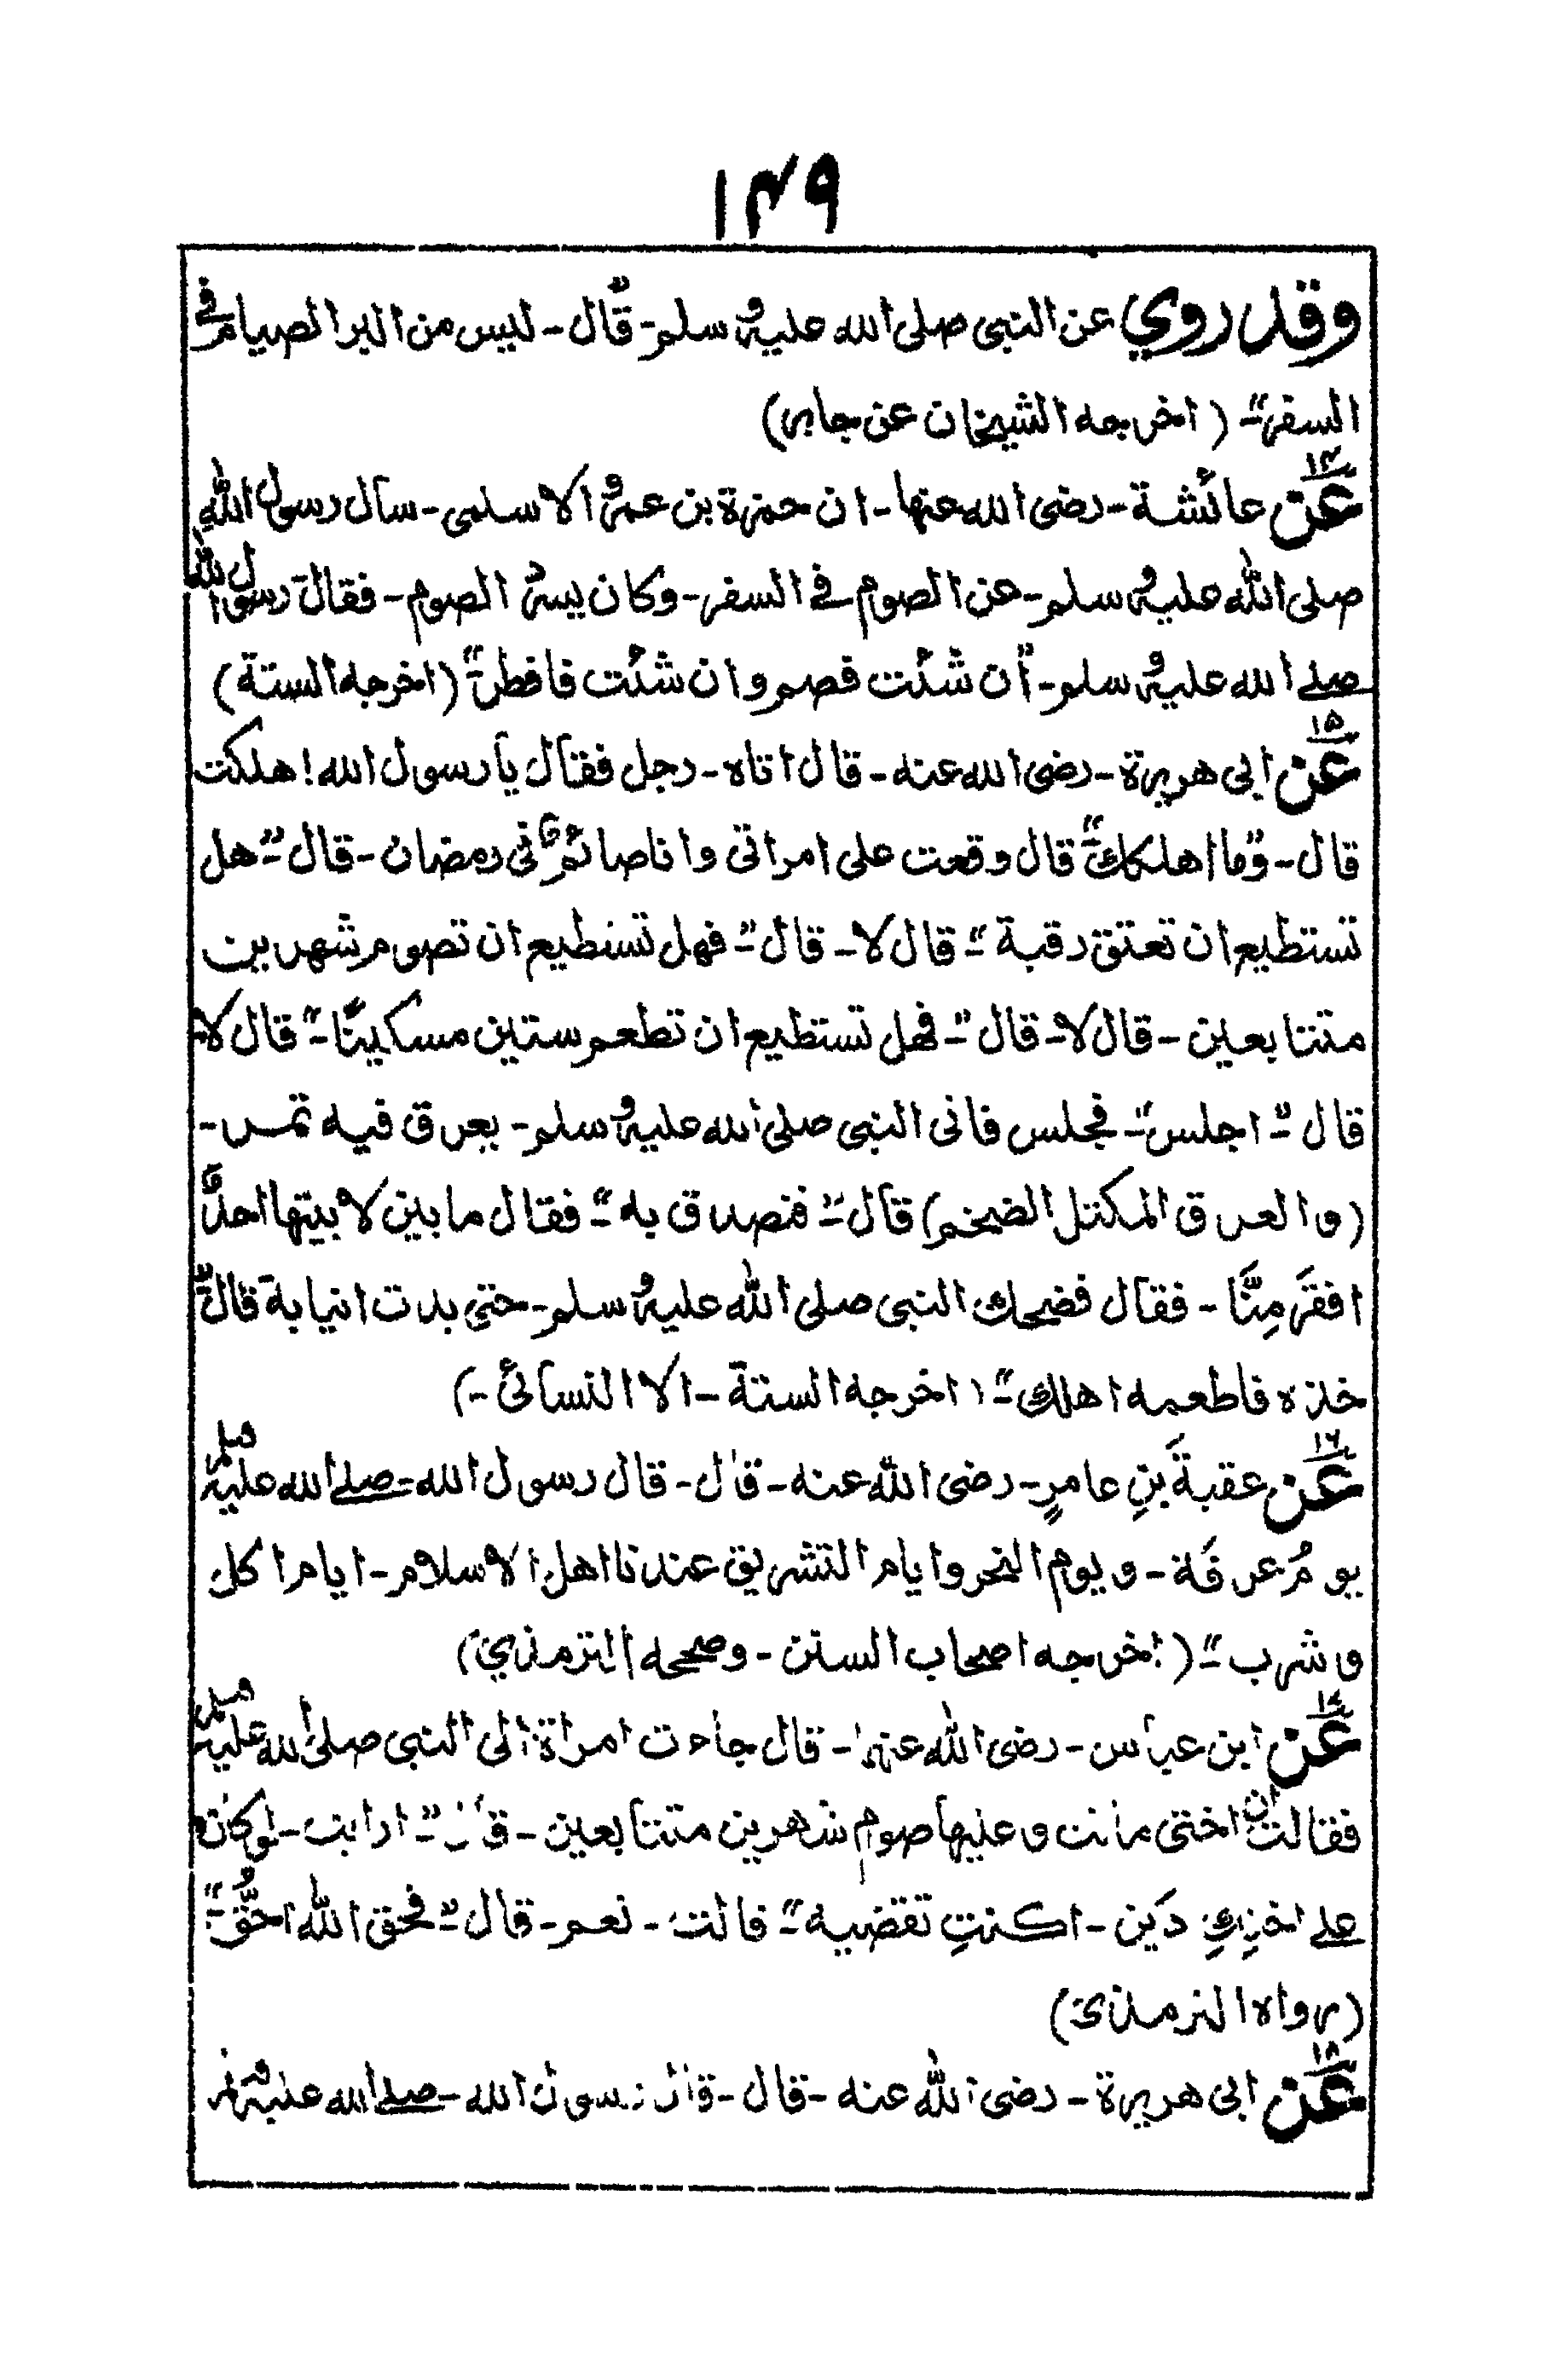 ۱۴۹
وقد روي عن النبى صلى الله عليه وسلم ـ قال ـ ليس من البر الصيام في
السفر" ـ (اخرجه الشيخان عن جابر)
۱۴
عن عائشة ـ رضى الله عنها ـ ان حمزة بن عمرو الاسلمى ـ سأل رسول الله
صلى الله عليه وسلم ـ عن الصوم في السفر ـ وكان يسرد الصوم ـ فقال رسول الله
صلے الله عليه وسلم ـ "ان شئت فصم وان شئت فافطر" (اخرجه الستة)
۱۵
عن ابى هريرة ـ رضى الله عنه ـ قال اتاه ـ رجل فقال يا رسول الله! هلكت
قال ـ "وما اهلكك" قال وقعت على امراتى وانا صائم فى رمضان ـ قال ـ" هل
تستطيع ان تعتق رقبة" ـ قال لا ـ قال ـ" فهل تستطيع ان تصوم شهرين
متتابعين ـ قال لا ـ قال ـ" فهل تستطيع ان تطعم ستين مسكينًا ـ" قال لا
قال ـ" اجلس" ـ فجلس فاتى النبى صلى الله عليه وسلم ـ بعرق فيه تمر ـ
(والعرق المكتل الضخم) قال ـ" فتصدق به" ـ فقال ما بين لابيتها احدٌ
افقرَ مِنَّا ـ فقال فضحك النبى صلى الله عليه وسلم ـ حتى بدت انيابة قال"
خذه فاطعمه اهلك" ـ (اخرجه الستة ـ الا النسائى ـ)
۱۶
عن عقبةَ بنِ عامرٍ ـ رضى الله عنه ـ قال ـ قال رسول الله ـ صلے الله عليه وسلم
يومُ عرفَة ـ ويوم النحر وايام التشريق عندنا اهل الاسلام ـ ايام اكل
وشرب" ـ (اخرجه اصحاب السنن ـ وصححه الترمذي)
۱۷
عن ابن عباس ـ رضى الله عنهما ـ قال جاءت امراة الى النبى صلى الله عليه وسلم
فقالت ان اختى ماتت وعليها صوم شهرين متتابعين ـ قال ـ" ارايت ـ لو كان
علے اختِكِ دَين ـ اكنتِ تقضيه" ـ قالت ـ نعم ـ قال ـ" فحق الله احقُّ" ـ
(رواه الترمذى)
۱۸
عن ابى هريرة ـ رضى الله عنه ـ قال ـ قال رسول الله ـ صلے الله عليه وسلم